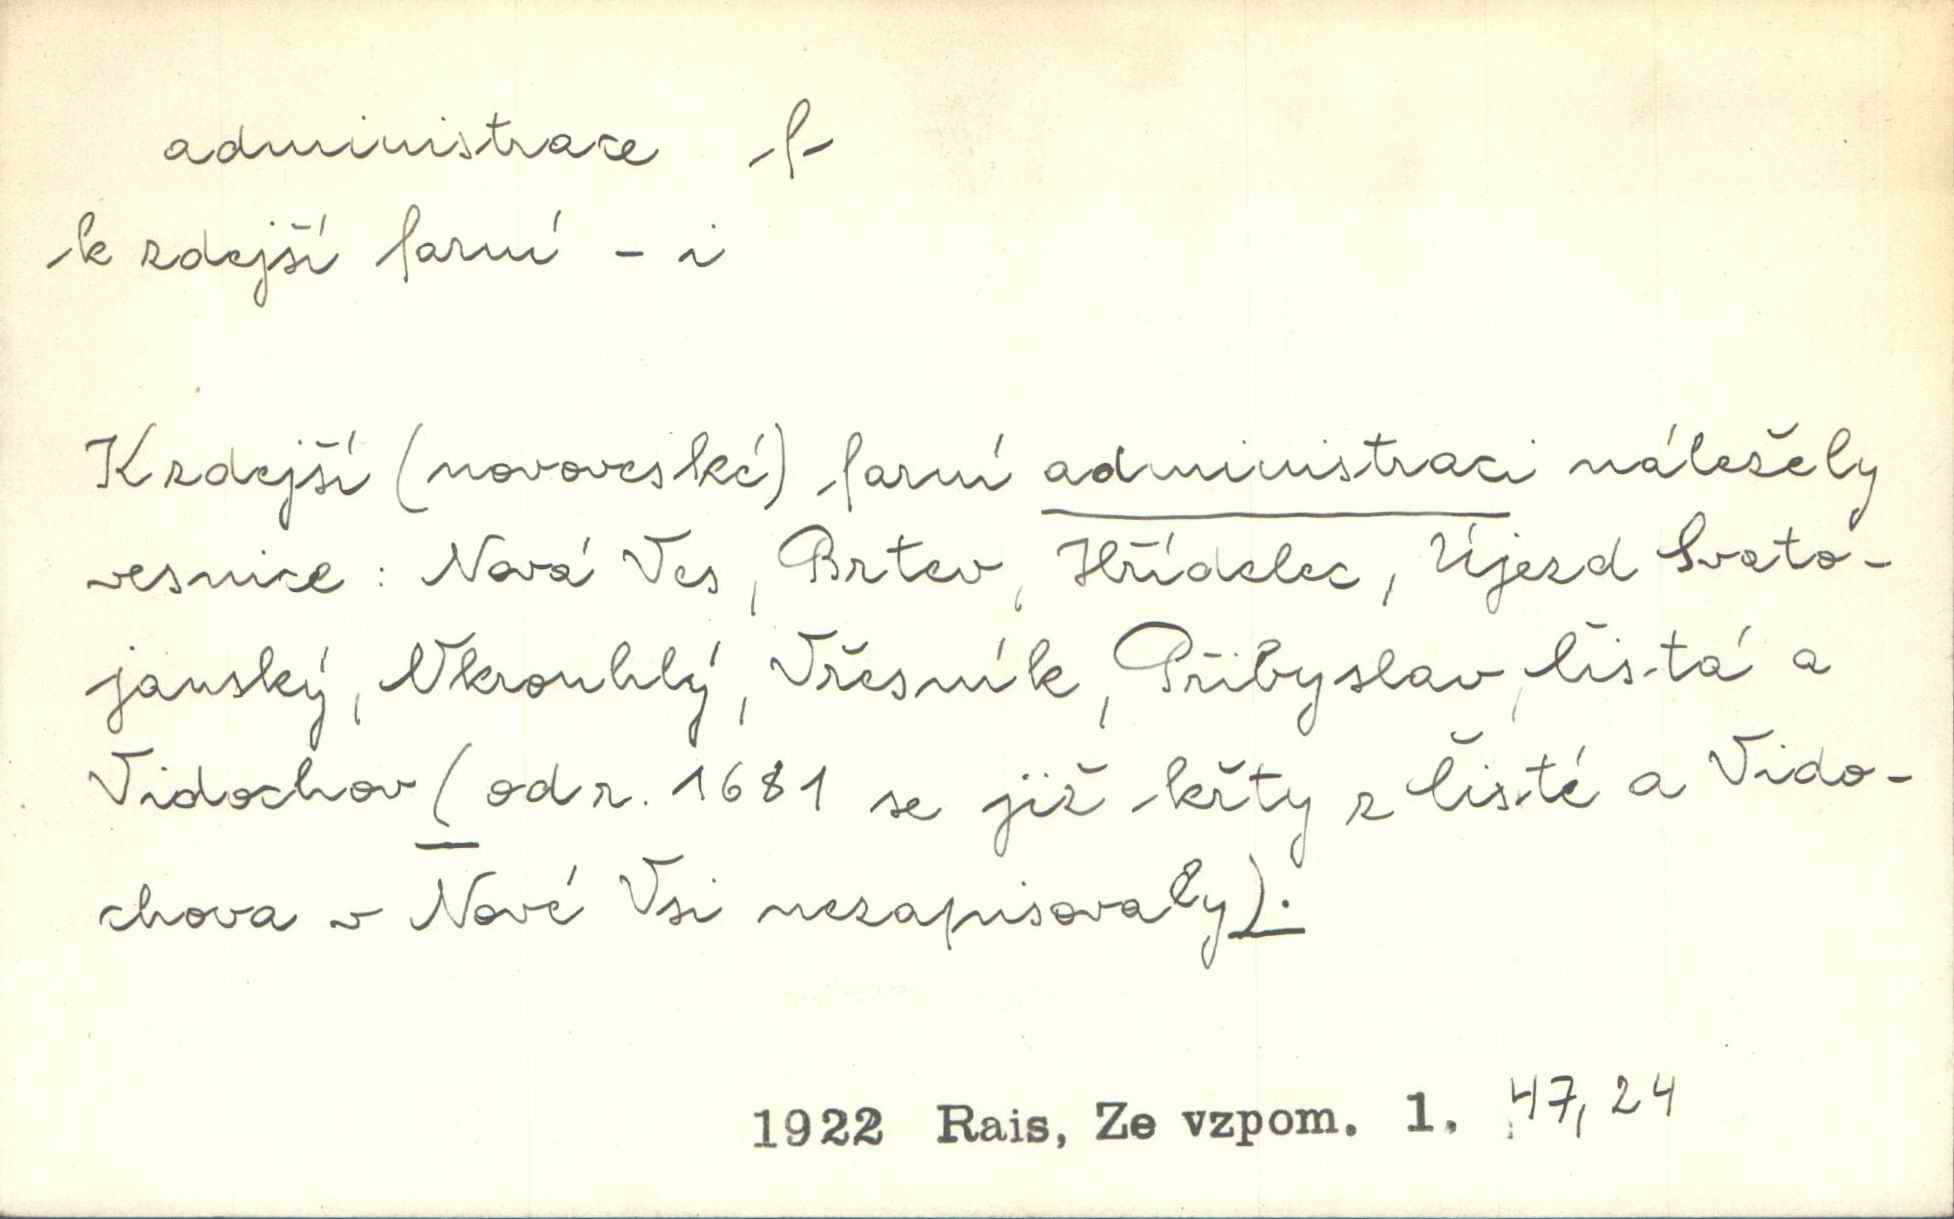 administrace f
k zdejší farní - i
K zdejší (novoveské) farní administraci náležely
vesnice: Nová Ves, Brtev, Hřídelec, Újezd Svato-
janský, Vkrouhlý, Vřesník, Přibyslav, Čistá a
Vidochov (od r. 1681 se již křty z Čisté a Vido-
chova v Nové Vsi nezapisovaly).
1922 Rais, Ze vzpom. 1. 47,24